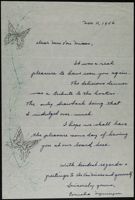 Nov. 11, 1956
Dear Mr. & Mrs.
It was a real
pleasure to have seen you again.
The delicious dinner
was a tribute to the hostess.
The only drawback being that
I indulged over much.
I hope we shall have
the pleasure some day of having
you at our board here.
With kindest regards &
greetings to the
Sincerely yours,